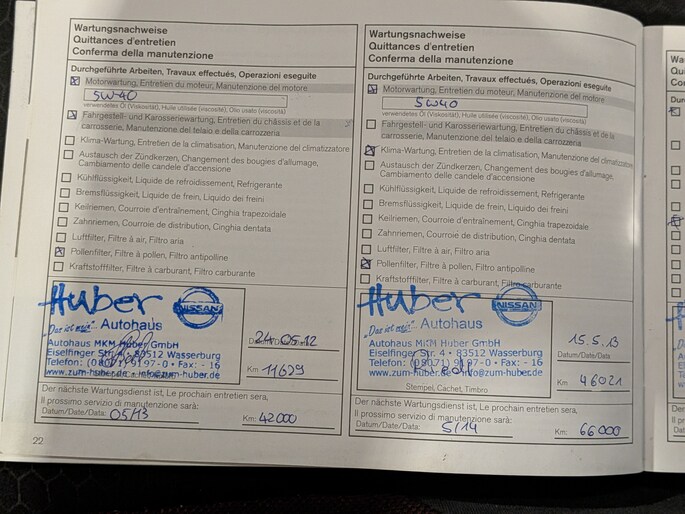 Wartungsnachweise
Quittances d'entretien
Conferma della manutenzione
Durchgeführte Arbeiten, Travaux effectués, Operazioni eseguite
Motorwartung, Entretien du moteur, Manutenzione del motore
5W-40
verwendetes Öl (Viskosität), Huile utilisée (viscosité), Olio usato (viscosità)
Fahrgestell- und Karosseriewartung, Entretien du châssis et de la
carrosserie, Manutenzione del telaio e della carrozzeria
Klima-Wartung, Entretien de la climatisation, Manutenzione del climatizzatore
Austausch der Zündkerzen, Changement des bougies d'allumage,
Cambiamento delle candele d'accensione
Kühlflüssigkeit, Liquide de refroidissement, Refrigerante
Bremsflüssigkeit, Liquide de frein, Liquido dei freini
Keilriemen, Courroie d'entraînement, Cinghia trapezoidale
Zahnriemen, Courroie de distribution, Cinghia dentata
Luftfilter, Filtre à air, Filtro aria
Pollenfilter, Filtre à pollen, Filtro antipolline
Kraftstofffilter, Filtre à carburant, Filtro carburante
Huber NISSAN
„Das ist mein" Autohaus
Autohaus MKM Huber GmbH
Eiselfinger Str. 4 • 83512 Wasserburg
Telefon: (08071) 9197-0 • Fax: - 16
www.zum-huber.de • info@zum-huber.de
24.05.12
Km: 11629
Der nächste Wartungsdienst ist, Le prochain entretien sera,
Il prossimo servizio di manutenzione sarà:
Datum/Date/Data: 05/13 Km: 42000
22
Wartungsnachweise
Quittances d'entretien
Conferma della manutenzione
Durchgeführte Arbeiten, Travaux effectués, Operazioni eseguite
Motorwartung, Entretien du moteur, Manutenzione del motore
5W40
verwendetes Öl (Viskosität), Huile utilisée (viscosité), Olio usato (viscosità)
Fahrgestell- und Karosseriewartung, Entretien du châssis et de la
carrosserie, Manutenzione del telaio e della carrozzeria
Klima-Wartung, Entretien de la climatisation, Manutenzione del climatizzatore
Austausch der Zündkerzen, Changement des bougies d'allumage,
Cambiamento delle candele d'accensione
Kühlflüssigkeit, Liquide de refroidissement, Refrigerante
Bremsflüssigkeit, Liquide de frein, Liquido dei freini
Keilriemen, Courroie d'entraînement, Cinghia trapezoidale
Zahnriemen, Courroie de distribution, Cinghia dentata
Luftfilter, Filtre à air, Filtro aria
Pollenfilter, Filtre à pollen, Filtro antipolline
Kraftstofffilter, Filtre à carburant, Filtro carburante
Huber NISSAN
„Das ist mein" Autohaus
Autohaus MKM Huber GmbH
Eiselfinger Str. 4 • 83512 Wasserburg
Telefon: (08071) 9197-0 • Fax: - 16
www.zum-huber.de • info@zum-huber.de
Stempel, Cachet, Timbro
15.5.13
Datum/Date/Data
Km: 46021
Der nächste Wartungsdienst ist, Le prochain entretien sera,
Il prossimo servizio di manutenzione sarà:
Datum/Date/Data: 5/14 Km: 66000